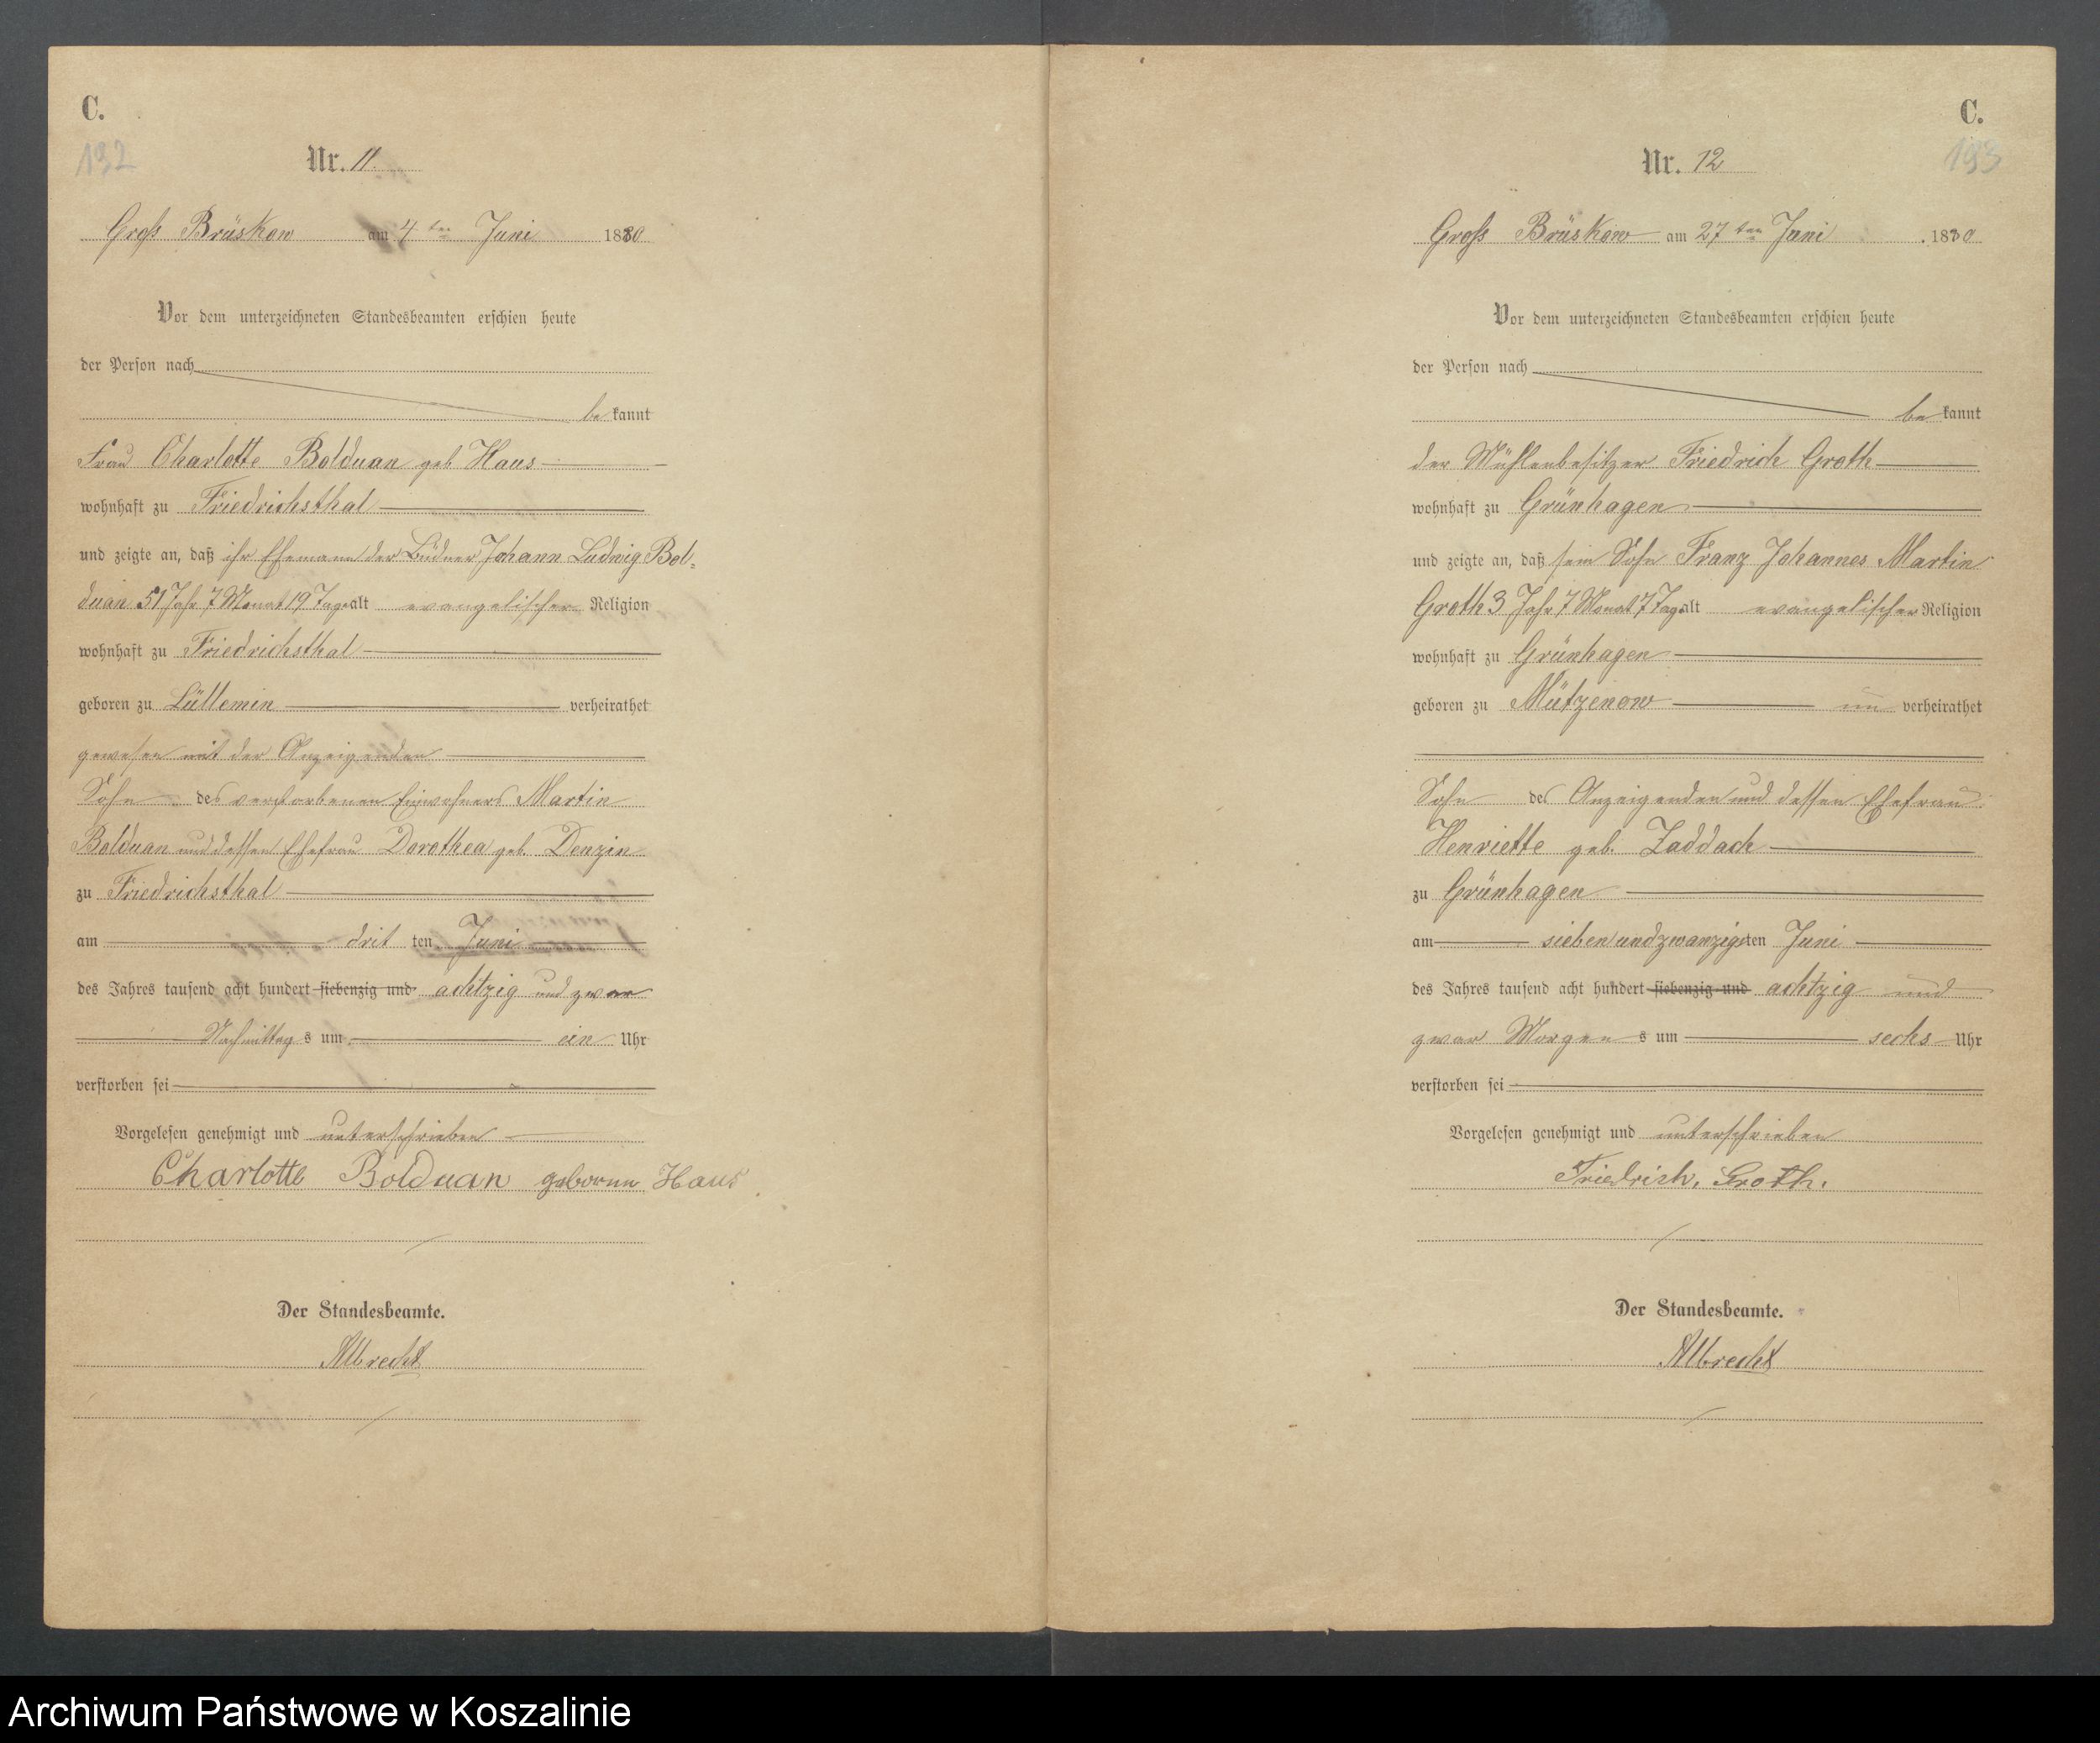 C.
132
Nr. 11.
Groß Brüskow am 4ten Juni 1880
Vor dem unterzeichneten Standesbeamten erschien heute
der Person nach
be kannt
Frau Charlotte Bolduan geb Haus
wohnhaft zu Friedrichsthal
und zeigte an, daß ihr Ehemann der Büdner Johann Ludwig Bol-
duan 51 Jahr 7 Monat 19 Tage alt evangelischer Religion
wohnhaft zu Friedrichsthal
geboren zu Lüllemin verheirathet
gewesen mit der Anzeigenden
Sohn des verstorbenen Einwohners Martin
Bolduan und dessen Ehefrau Dorothea geb. Denzin
zu Friedrichsthal
am drit ten Juni
des Jahres tausend acht hundert siebenzig und achtzig und zwar
Nachmittag s um ein Uhr
verstorben sei
Vorgelesen genehmigt und unterschrieben
Charlotte Bolduan geborne Haus
Der Standesbeamte.
Albrecht
C.
133
Nr. 12
Groß Brüskow am 27ten Juni 1880
Vor dem unterzeichneten Standesbeamten erschien heute
der Person nach
be kannt
der Mühlenbesitzer Friedrich Groth
wohnhaft zu Grünhagen
und zeigte an, daß sein Sohn Franz Johannes Martin
Groth 3 Jahr 7 Monat 7 Tag alt evangelischer Religion
wohnhaft zu Grünhagen
geboren zu Mützenow un verheirathet
Sohn des Anzeigenden und dessen Ehefrau
Henriette geb. Zaddach
zu Grünhagen
am siebenundzwanzigsten Juni
des Jahres tausend acht hundert siebenzig und achtzig und
zwar Morgen s um sechs Uhr
verstorben sei
Vorgelesen genehmigt und unterschrieben
Friedrich. Groth.
Der Standesbeamte.
Albrecht
Archiwum Państwowe w Koszalinie